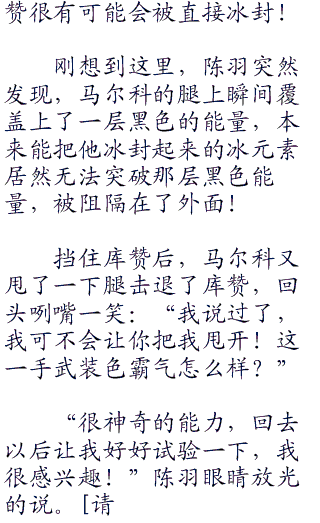 赞很有可能会被直接冰封！
刚想到这里，陈羽突然
发现，马尔科的腿上瞬间覆
盖上了一层黑色的能量，本
来能把他冰封起来的冰元素
居然无法突破那层黑色能
量，被阻隔在了外面！
挡住库赞后，马尔科又
甩了一下腿击退了库赞，回
头咧嘴一笑：“我说过了，
我可不会让你把我甩开！这
一手武装色霸气怎么样？”
“很神奇的能力，回去
以后让我好好试验一下，我
很感兴趣！”陈羽眼睛放光
的说。[请